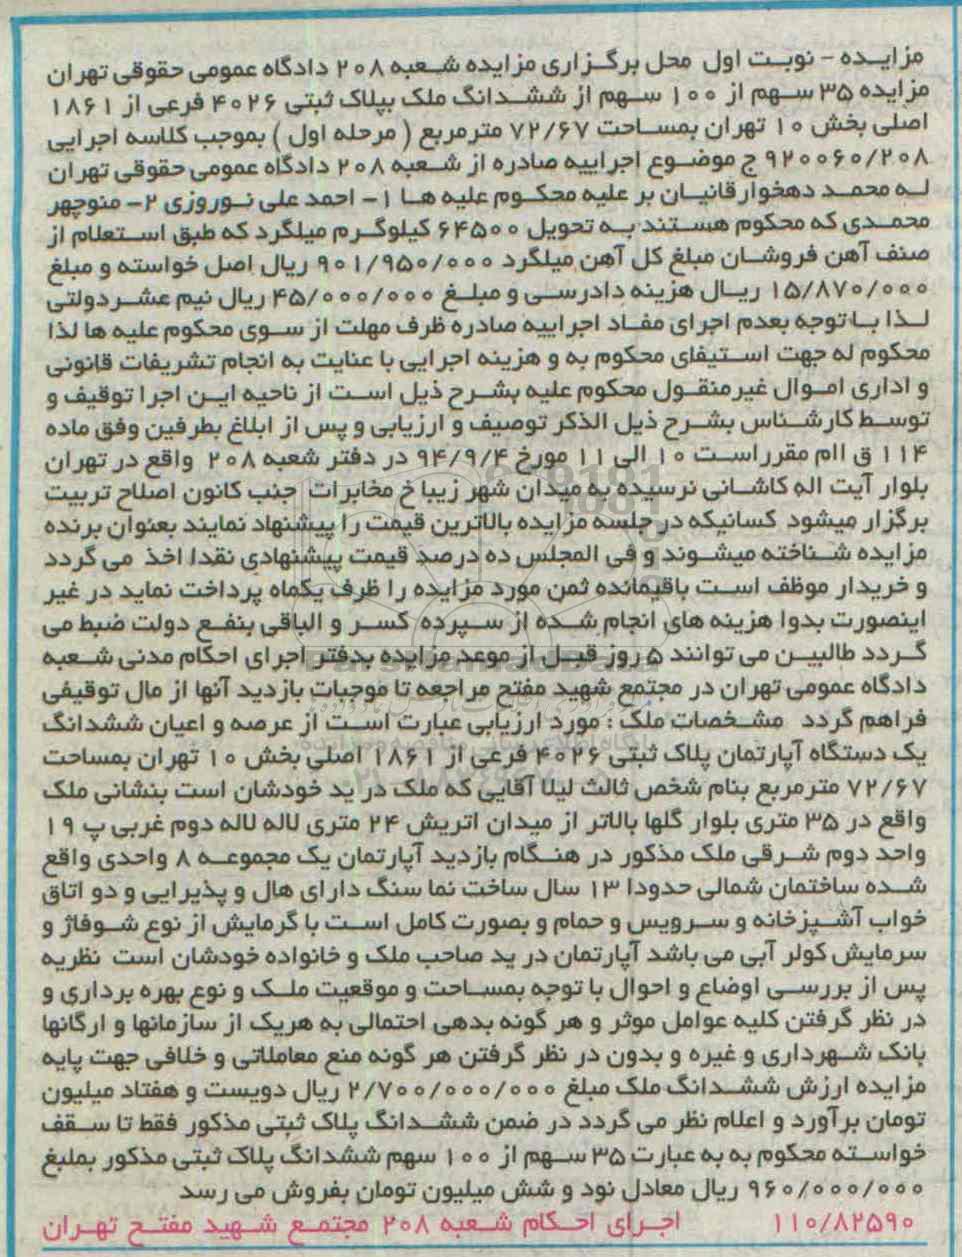 مزایـده - نوبـت اول  محل برگـزاری مزایده شـعبه ۲۰۸ دادگاه عمومی حقوقی تهران
مزایده ۳۵ سـهم از ۱۰۰ سـهم از ششـدانگ ملک بپلاک ثبتی ۴۰۲۶ فرعی از ۱۸۶۱
اصلی بخش ۱۰ تهران بمسـاحت ۷۲/۶۷ مترمربع ( مرحله اول ) بموجب کلاسه اجرایی
۹۲۰۰۶۰/۲۰۸ ج موضـوع اجراییه صادره از شـعبه ۲۰۸ دادگاه عمومی حقوقی تهران
لـه محمـد دهخوارقانیـان بر علیه محکـوم علیه هـا ۱- احمد علی نـوروزی ۲- منوچهر
محمـدی که محکوم هسـتند بـه تحویل ۶۴۵۰۰ کیلوگـرم میلگرد که طبق اسـتعلام از
صنف آهن فروشـان مبلغ کل آهن میلگرد ۹۰۱/۹۵۰/۰۰۰ ریال اصل خواسته و مبلغ
۱۵/۸۷۰/۰۰۰ ریـال هزینه دادرسـی و مبلـغ ۴۵/۰۰۰/۰۰۰ ریال نیم عشـردولتی
لـذا بـا توجه بعدم اجرای مفـاد اجراییه صادره ظرف مهلت از سـوی محکوم علیه ها لذا
محکوم له جهت اسـتیفای محکوم به و هزینه اجرایی با عنایت به انجام تشریفات قانونی
و اداری امـوال غیرمنقـول محکوم علیه بشـرح ذیل اسـت از ناحیه ایـن اجرا توقیف و
توسـط کارشـناس بشـرح ذیل الذکر توصیف و ارزیابی و پس از ابلاغ بطرفین وفق ماده
۱۱۴ ق اام مقرراسـت ۱۰ الی ۱۱ مورخ ۹۴/۹/۴ در دفتر شعبه ۲۰۸  واقع در تهران
بلوار آیت اله کاشـانی نرسیده به میدان شهر زیبا خ مخابرات  جنب کانون اصلاح تربیت
برگزار میشود  کسانیکه در جلسه مزایده بالاترین قیمت را پیشنهاد نمایند بعنوان برنده
مزایده شـناخته میشـوند و فی المجلس ده درصد قیمت پیشنهادی نقدا اخذ  می گردد
و خریدار موظف اسـت باقیمانده ثمن مورد مزایده را ظرف یکماه پرداخت نماید در غیر
اینصورت بدوا هزینه های انجام شـده از سـپرده  کسـر و الباقی بنفـع دولت ضبط می
گـردد طالبیـن می توانند ۵ روز قبـل از موعد مزایده بدفتر اجرای احکام مدنی شـعبه
دادگاه عمومی تهران در مجتمع شهید مفتح مراجعه تا موجبات بازدید آنها از مال توقیفی
فراهم گردد   مشـخصات ملک : مورد ارزیابی عبارت اسـت از عرصه و اعیان ششدانگ
یک دستگاه آپارتمان پلاک ثبتی ۴۰۲۶ فرعی از ۱۸۶۱ اصلی بخش ۱۰ تهران بمساحت
۷۲/۶۷ مترمربع بنام شخص ثالث لیلا آقایی که ملک در ید خودشان است بنشانی ملک
واقع در ۳۵ متری بلوار گلها بالاتر از میدان اتریش ۲۴ متری لاله لاله دوم غربی پ ۱۹
واحد دوم شـرقی ملک مذکور در هنـگام بازدید آپارتمان یک مجموعـه ۸ واحدی واقع
شـده ساختمان شمالی حدودا ۱۳ سال ساخت نما سنگ دارای هال و پذیرایی و دو اتاق
خواب آشـپزخانه و سـرویس و حمام و بصورت کامل اسـت با گرمایش از نوع شـوفاژ و
سـرمایش کولر آبی می باشد آپارتمان در ید صاحب ملک و خانواده خودشان است  نظریه
پس از بررسـی اوضاع و احوال با توجه بمسـاحت و موقعیت ملـک و نوع بهره برداری و
در نظر گرفتن کلیه عوامل موثر و هر گونه بدهی احتمالی به هریک از سازمانها و ارگانها
بانک شـهرداری و غیره و بدون در نظر گرفتن هر گونه منع معاملاتی و خلافی جهت پایه
مزایده ارزش ششـدانگ ملک مبلغ ۲/۷۰۰/۰۰۰/۰۰۰ ریال دویست و هفتاد میلیون
تومان برآورد و اعلام نظر می گردد در ضمن ششـدانگ پلاک ثبتی مذکور فقط تا سـقف
خواسـته محکوم به به عبارت ۳۵ سـهم از ۱۰۰ سهم ششدانگ پلاک ثبتی مذکور بملبغ
۹۶۰/۰۰۰/۰۰۰ ریال معادل نود و شش میلیون تومان بفروش می رسد
۱۱۰/۸۲۵۹۰          اجـرای احـکام شـعبه ۲۰۸ مجتمـع شـهید مفتـح تهـران